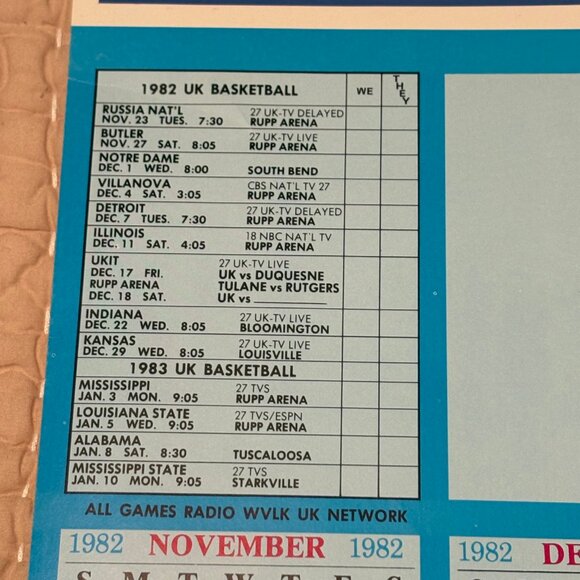 1982 UK BASKETBALL WE THEY
RUSSIA NAT'L 27 UK-TV DELAYED
NOV. 23 TUES. 7:30 RUPP ARENA
BUTLER 27 UK-TV LIVE
NOV. 27 SAT. 8:05 RUPP ARENA
NOTRE DAME
DEC. 1 WED. 8:00 SOUTH BEND
VILLANOVA CBS NAT'L TV 27
DEC. 4 SAT. 3:05 RUPP ARENA
DETROIT 27 UK-TV DELAYED
DEC. 7 TUES. 7:30 RUPP ARENA
ILLINOIS 18 NBC NAT'L TV
DEC. 11 SAT. 4:05 RUPP ARENA
UKIT 27 UK-TV LIVE
DEC. 17 FRI. UK vs DUQUESNE
RUPP ARENA TULANE vs RUTGERS
DEC. 18 SAT. UK vs ___________
INDIANA 27 UK-TV LIVE
DEC. 22 WED. 8:05 BLOOMINGTON
KANSAS 27 UK-TV LIVE
DEC. 29 WED. 8:05 LOUISVILLE
1983 UK BASKETBALL
MISSISSIPPI 27 TVS
JAN. 3 MON. 9:05 RUPP ARENA
LOUISIANA STATE 27 TVS/ESPN
JAN. 5 WED. 9:05 RUPP ARENA
ALABAMA
JAN. 8 SAT. 8:30 TUSCALOOSA
MISSISSIPPI STATE 27 TVS
JAN. 10 MON. 9:05 STARKVILLE
ALL GAMES RADIO WVLK UK NETWORK
1982 NOVEMBER 1982 1982 DE
S M T W T F S